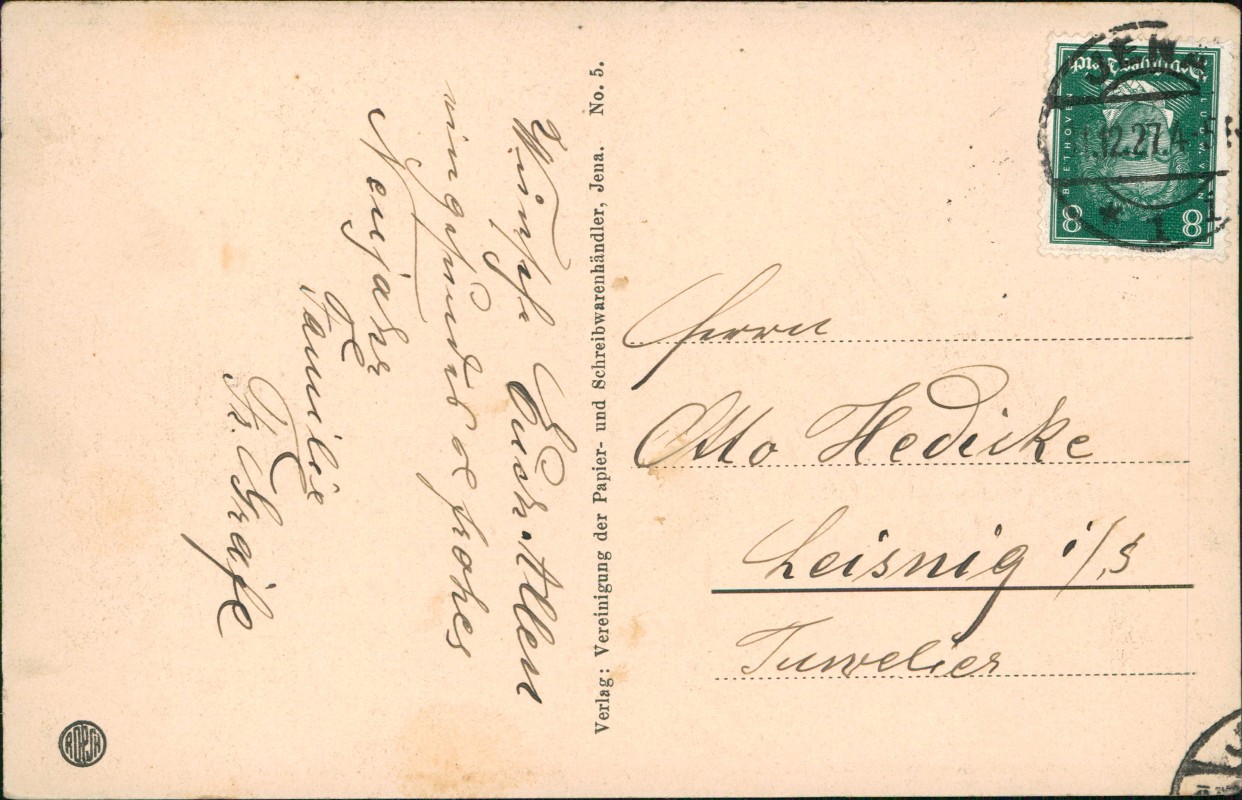 Wünsche Euch Allen
ein gesundes frohes
Neujahr
Familie
Fr. Grafe
Verlag: Vereinigung der Papier- und Schreibwarenhändler, Jena. No. 5.
Deutsches Reich
BEETHOVEN
8 8
JENA
.12.27.4-5
* 1
Herrn
Otto Hedicke
Leisnig i/S
Juwelier